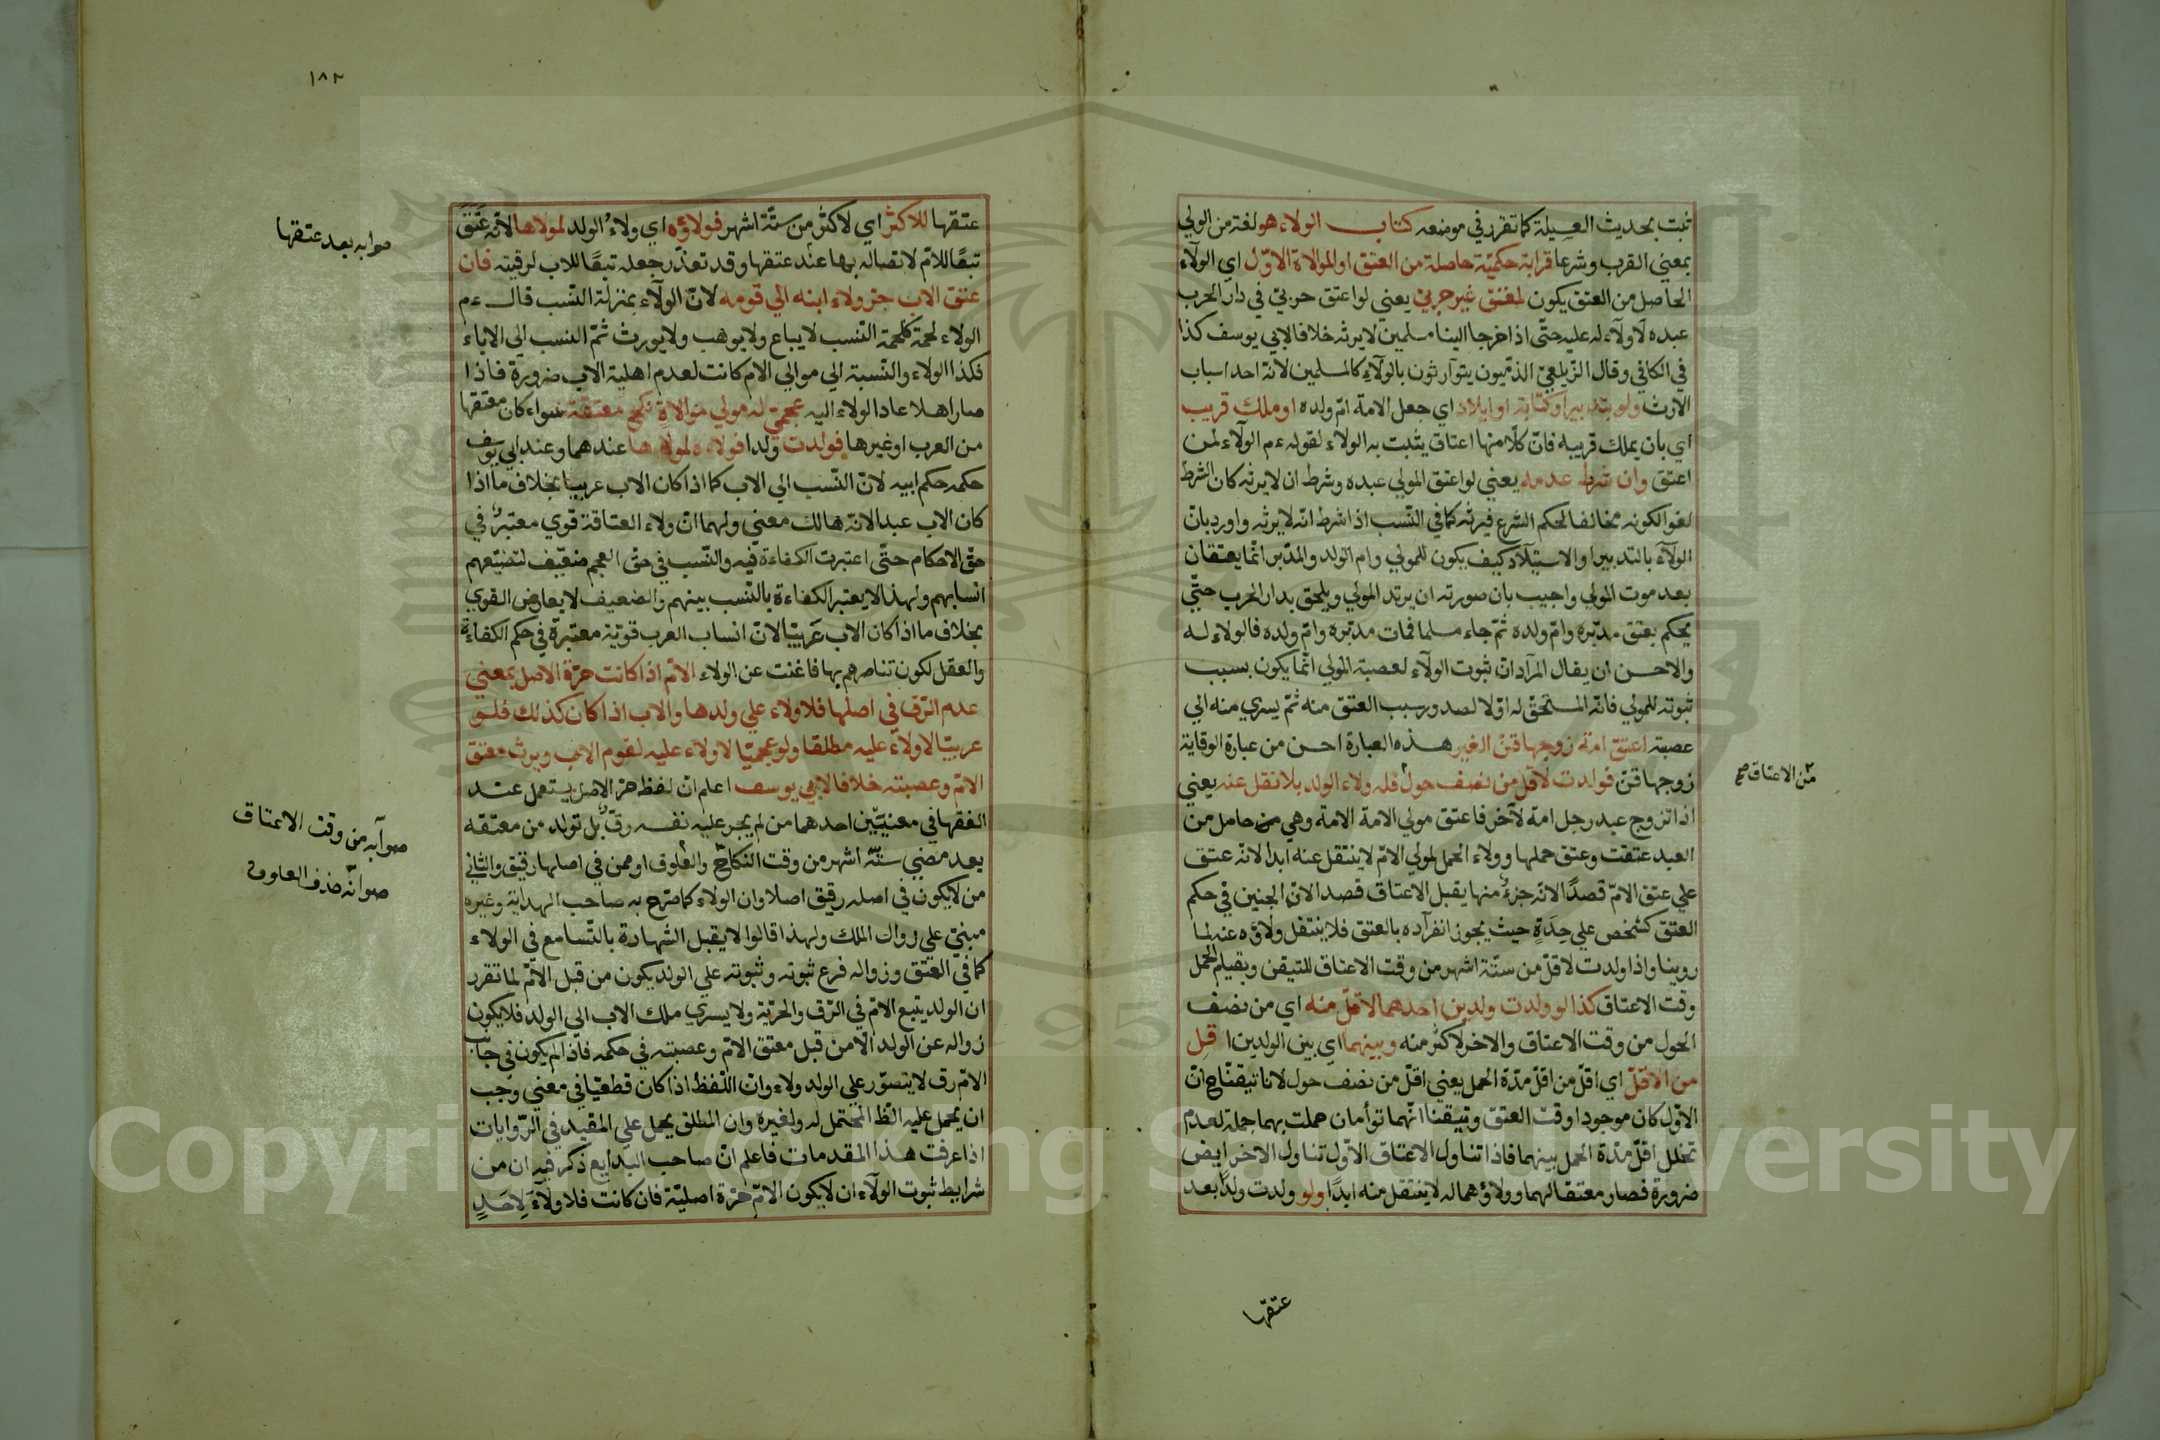 ثبت بحديث العسيلة كما تقرر في موضعه كتاب الولاء هو لغة من الولي
بمعني القرب وشرعا قرابة حكميّة حاصلة من العتق او الموالاة الاوّل اي الولآء
الحاصل من العتق يكون لمعتق غير حربيّ يعني لو اعتق حربيّ في دار الحرب
عبده لا ولآء له عليه حتّى اذا خرجا الينا مسلمين لا يرثه خلافا لابي يوسف كذا
في الكافي وقال الزّيلعيّ الذمّيون يتوآرثون بالولآء كالمسلمين لانّه احد اسباب
الارث ولو بتدبير او كتابة او ايلاد اي جعل الامة امّ ولده او ملك قريب
اي بان يملك قريبه فانّ كلّا منها اعتاق يثبت به الولاء لقوله ءم الولآء لمن
اعتق وان شرط عدمه يعني لو اعتق المولي عبده وشرط ان لا يرثه كان الشرط
لغوا لكونه مخالفا لحكم الشرع فيرثه كما في النّسب اذا شرط انّه لا يرثه واورد بانّ
الولآء بالتدبير او الاستيلآد كيف يكون للمولي وام الولد والمدّبر انّما يعتقان
بعد موت المولي واجيب بان صورته ان يرتد المولي ويلحق بدار الحرب حتّي
يحكم بعتق مدبّره وامّ ولده ثمّ جاء مسلما فمات مدبّره وامّ ولده فالولاء له
والاحسن ان يقال المرآد انّ ثبوت الولآء لعصبة المولي انّما يكون بسبب
ثبوته للمولي فانّه المستحقّ له اوّلا لصدور سبب العتق منه ثمّ يسري منه الي
عصبته اعتق امة زوجها قنّ الغير هذه العبارة احسن من عبارة الوقاية
زوجها قنّ فولدت لاقلّ من نصف حول فله ولاء الولد بلا نقل عنه يعني
اذا تزوج عبد رجل امة لآخر فاعتق مولي الامة الامة وهي حامل من
العبد عتقت وعتق حملها وولاء الحمل لمولي الامّ لا ينتقل عنه ابدا لانّه عتق
علي عتق الامّ قصدًا لانّه جزءٌ منها يقبل الاعتاق قصدا لانّ الجنين في حكم
العتق كشخص علي حِدَةٍ حيث يجوز انفرآده بالعتق فلا ينتقل ولاؤه عنه لما
روينا واذا ولدت لاقلّ من ستّة اشهر من وقت الاعتاق للتيقن وبقيام الحمل
وقت الاعتاق كذا لو ولدت ولدين احدهما لاقلّ منه اي من نصف
الحول من وقت الاعتاق والاخر لاكثر منه وبينهما اي بين الولدين اقل
من الاقلّ اي اقلّ من اقلّ مدّة الحمل يعني اقلّ من نصف حول لانا تيقنّاح انّ
الاوّل كان موجودا وقت العتق وتيقنا انّهما توأمان حملت بهما جملة لعدم
تخلل اقلّ مدّة الحمل بينهما فاذا تناول الاعتاق الاوّل تناول الاخر ايض
ضرورة فصار معتقا لهما وولاؤهما له لا ينتقل منه ابدًا ولو ولدت ولدًا بعد
من الاعتاق صح
عتقها
١٨٢
عتقها للاكثر اي لاكثر من ستّة اشهر فولاؤه اي ولاءُ الولد لمولاها لانّه عتق
تبعًا للامّ لاتصاله بها عند عتقها وقد تعذّر جعله تبعًا للاب لرقيته فان
عتق الاب جرّ ولاء ابنه الي قومه لانّ الولآء بمنزلة النّسب قال ءم
الولاء لحمة كلحمة النّسب لا يباع ولا يوهب ولا يورث ثمّ النسب الي الاباء
فكذا الولاء والنّسبة الي موالي الام كانت لعدم اهلية الاب ضرورة فاذا
صار اهلا عاد الولاء اليه عجميّ له مولي موالاةٍ نكح معتقة سواء كان معتقها
من العرب او غيرها فولدت ولدا فولاءه لمولاها عندهما وعند ابي يوسف
حكمه حكم ابيه لانّ النّسب الي الاب كما اذا كان الاب عربيا بخلاف ما اذا
كان الاب عبدا لانّه هالك معني ولهما انّ ولاء العتاقة قوي معتبرٌ في
حقّ الاحكام حتّي اعتبرت الكفاءة فيه والنّسب في حقّ العجم ضعيف لتضيّعهم
انسابهم ولهذا لا يعتبر الكفاءة بالنّسب بينهم والضعيف لا يعارض القوي
بخلاف ما اذا كان الاب عَربيّا لانّ انساب العرب قويّة معتبرة في حكم الكفاءة
والعقل لكون تناصرهم بها فاغنت عن الولاء الامّ اذا كانت حرّة الاصل بمعني
عدم الرّق في اصلها فلا ولاء علي ولدها والاب اذا كان كذلك فلو
عربيّا لا ولآء عليه مطلقا ولو عجميّا لا ولاء عليه لقوم الاب ويرث معتق
الامّ وعصبته خلافا لابي يوسف اعلم ان لفظ حرّ الاصل يستعمل عند
الفقها في معنيّين احدهما من لم يجر علي نفسه رقٌ بل تولد من معتقه
بعد مضي ستّة اشهر من وقت النكاح والعلوق او ممن في اصلها رقيق والثاني
من لا يكون في اصله رقيق اصلا وان الولاء كما صرّح به صاحب الهداية وغيره
مبنيّ علي زوال الملك ولهذا قالوا لا يقبل الشهادة بالتّسامع في الولاء
كما في العتق وزواله فرع ثبوته وثبوته علي الولد يكون من قبل الامّ لما تقرر
ان الولد يتبع الامّ في الرّق والحرّية ولا يسري ملك الاب الي الولد فلا يكون
زواله عن الولد الّا من قبل معتق الامّ وعصبته في حكمه فاذا لم يكون في جانب
الامّ رق لا يتصوّر علي الولد ولاء وانّ اللّفظ اذا كان قطعيّا في معني وجب
ان يحمل عليه اللّظ المحتمل له ولغيره وان المطلق يحمل علي المقيد في الرّوايات
اذا عرفت هذا المقدمات فاعلم انّ صاحب البدايع ذكر فيه ان من
شرايط ثبوت الولآء ان لا يكون الامّ حرّة اصليّة فان كانت فلا ولآءَ لِاَحَدٍ
صوابه بعد عتقها
صوآبه من وقت الاعتاق
صوانّه حذف العلوق